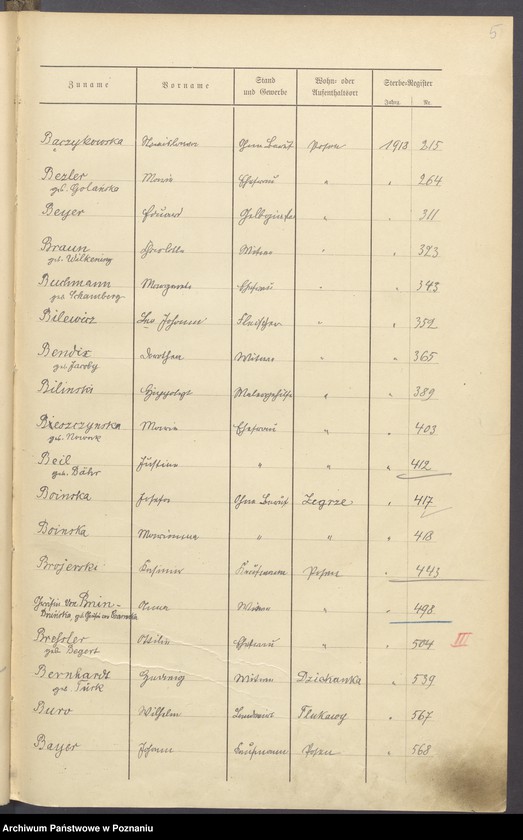 5
Zuname Vorname Stand und Gewerbe Wohn- oder Aufenthaltsort Sterbe-Register
Jahrg. Nr.
Bączykowska Posen 1913 215
Bezler Maria Ehefrau " " 264
geb. Golańska
Beyer Eduard " " 311
Braun Charlotte Witwe " " 323
geb. Wilkening
Buchmann Margarete Ehefrau " " 343
geb. Schamberg
Bilewicz Johann Fleischer " " 352
Bendix Dorothea Witwe " " 365
geb. Jacoby
Bilinski Hippolyt Malergehilfe " " 389
Bieszczynska Maria Ehefrau " " 403
geb. Nowak
Beil Justine " " " 412
geb. Dähr
Boinska Josefa Ohne Beruf Zegrze " 417
Boinska Marianna " " " 418
Brojewski Kasimir Kaufmann Posen " 443
Gräfin von Bnin- Anna Witwe " " 498
Bninska, geb. Gräfin von
Bressler Ottilie Ehefrau " " 504 III
geb. Begert
Bernhardt Hedwig Witwe Dziekanka " 539
geb. Türk
Buro Wilhelm Landwirt " 567
Bayer Johann Kaufmann Posen " 568
Archiwum Państwowe w Poznaniu